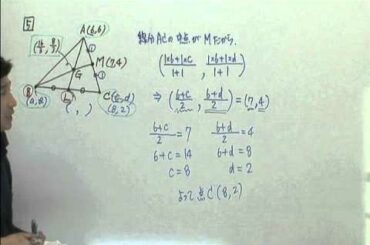 5
A(6,6)
M(7,4)
G
B
(a,b)
C(c,d)
(8,2)
( , )
線分ACの中点がMだから、
(1×6+1×c/1+1 , 1×6+1×d/1+1)
⇒ (6+c/2 , 6+d/2) = (7,4)
6+c/2 = 7 6+d/2 = 4
6+c = 14 6+d = 8
c = 8 d = 2
よって点C(8,2)